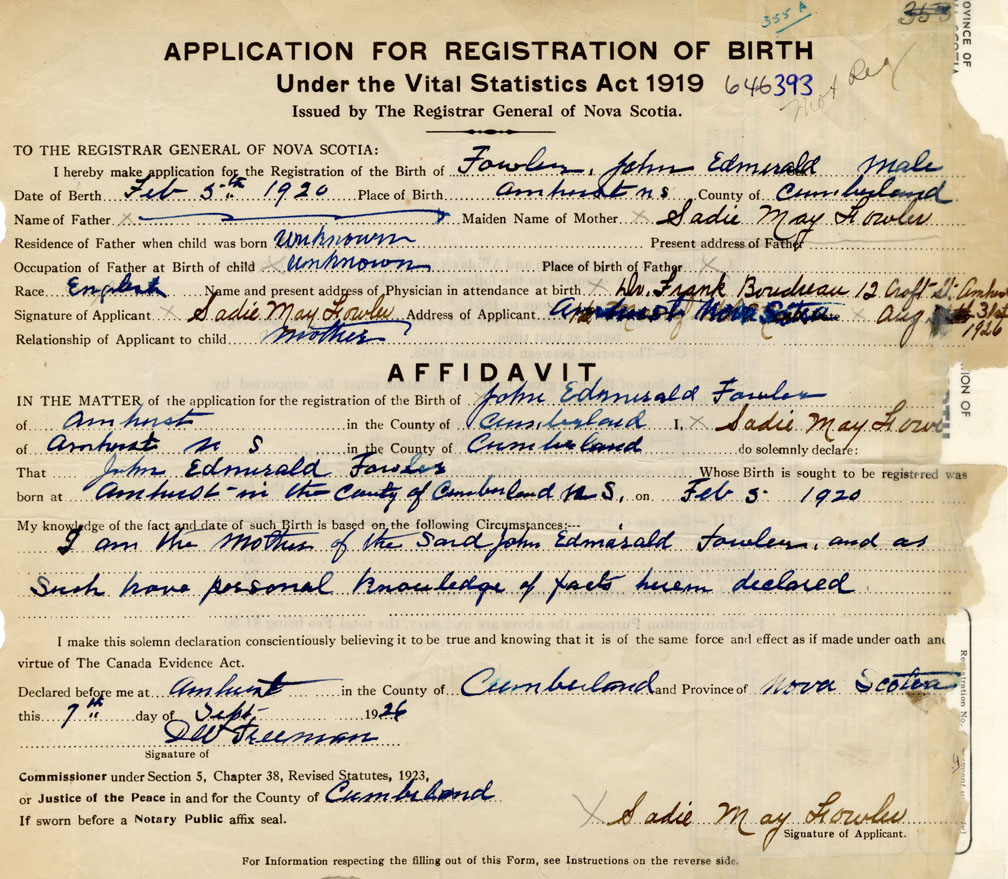 355 A
353
APPLICATION FOR REGISTRATION OF BIRTH
Under the Vital Statistics Act 1919 646393
Not Reg
Issued by The Registrar General of Nova Scotia.
TO THE REGISTRAR GENERAL OF NOVA SCOTIA:
I hereby make application for the Registration of the Birth of Fowler, John Edmerald Male
Date of Berth Feb 5th 1920 Place of Birth Amherst N S County of Cumberland
Name of Father x Maiden Name of Mother x Sadie May Fowler
Residence of Father when child was born unknown Present address of Father
Occupation of Father at Birth of child x unknown Place of birth of Father x
Race English Name and present address of Physician in attendance at birth x Dr. Frank Boudreau 12 Croft St. Amherst
Signature of Applicant x Sadie May Fowler Address of Applicant Amherst Nova Scotia x Aug 31st
1926
Relationship of Applicant to child mother
AFFIDAVIT
IN THE MATTER of the application for the registration of the Birth of John Edmerald Fowler
of Amherst in the County of Cumberland I, x Sadie May Fowl
of Amherst N S in the County of Cumberland do solemnly declare:
That John Edmerald Fowler Whose Birth is sought to be registered was
born at Amherst in the County of Cumberland N.S. on Feb 5 1920
My knowledge of the fact and date of such Birth is based on the following Circumstances:--
I am the Mother of the said John Edmerald Fowler, and as
such have personal knowledge of facts herein declared
I make this solemn declaration conscientiously believing it to be true and knowing that it is of the same force and effect as if made under oath and
virtue of The Canada Evidence Act.
Declared before me at Amherst in the County of Cumberland and Province of Nova Scotia
this 7th day of Sept. 1926
D W Freeman
Signature of
Commissioner under Section 5, Chapter 38, Revised Statutes, 1923,
or Justice of the Peace in and for the County of Cumberland
If sworn before a Notary Public affix seal.
x Sadie May Fowler
Signature of Applicant.
For Information respecting the filling out of this Form, see Instructions on the reverse side.
OVINCE OF
ION OF
Registration No.